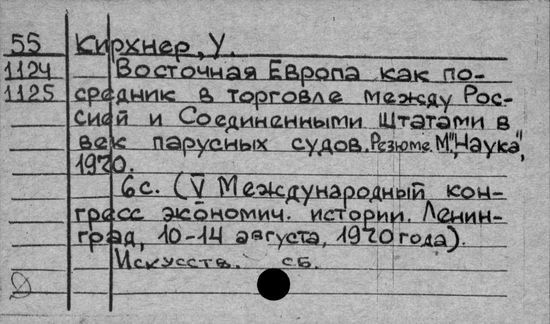 55 Кирхнер, У.
1124 Восточная Европа как по-
1125 средник в торговле между Рос-
сией и Соединенными Штатами в
век парусных судов. Резюме. М., "Наука",
1970.
6с. (V Международный кон-
гресс экономич. истории. Ленин-
град, 10-14 августа, 1970 года).
Искусств. сб.